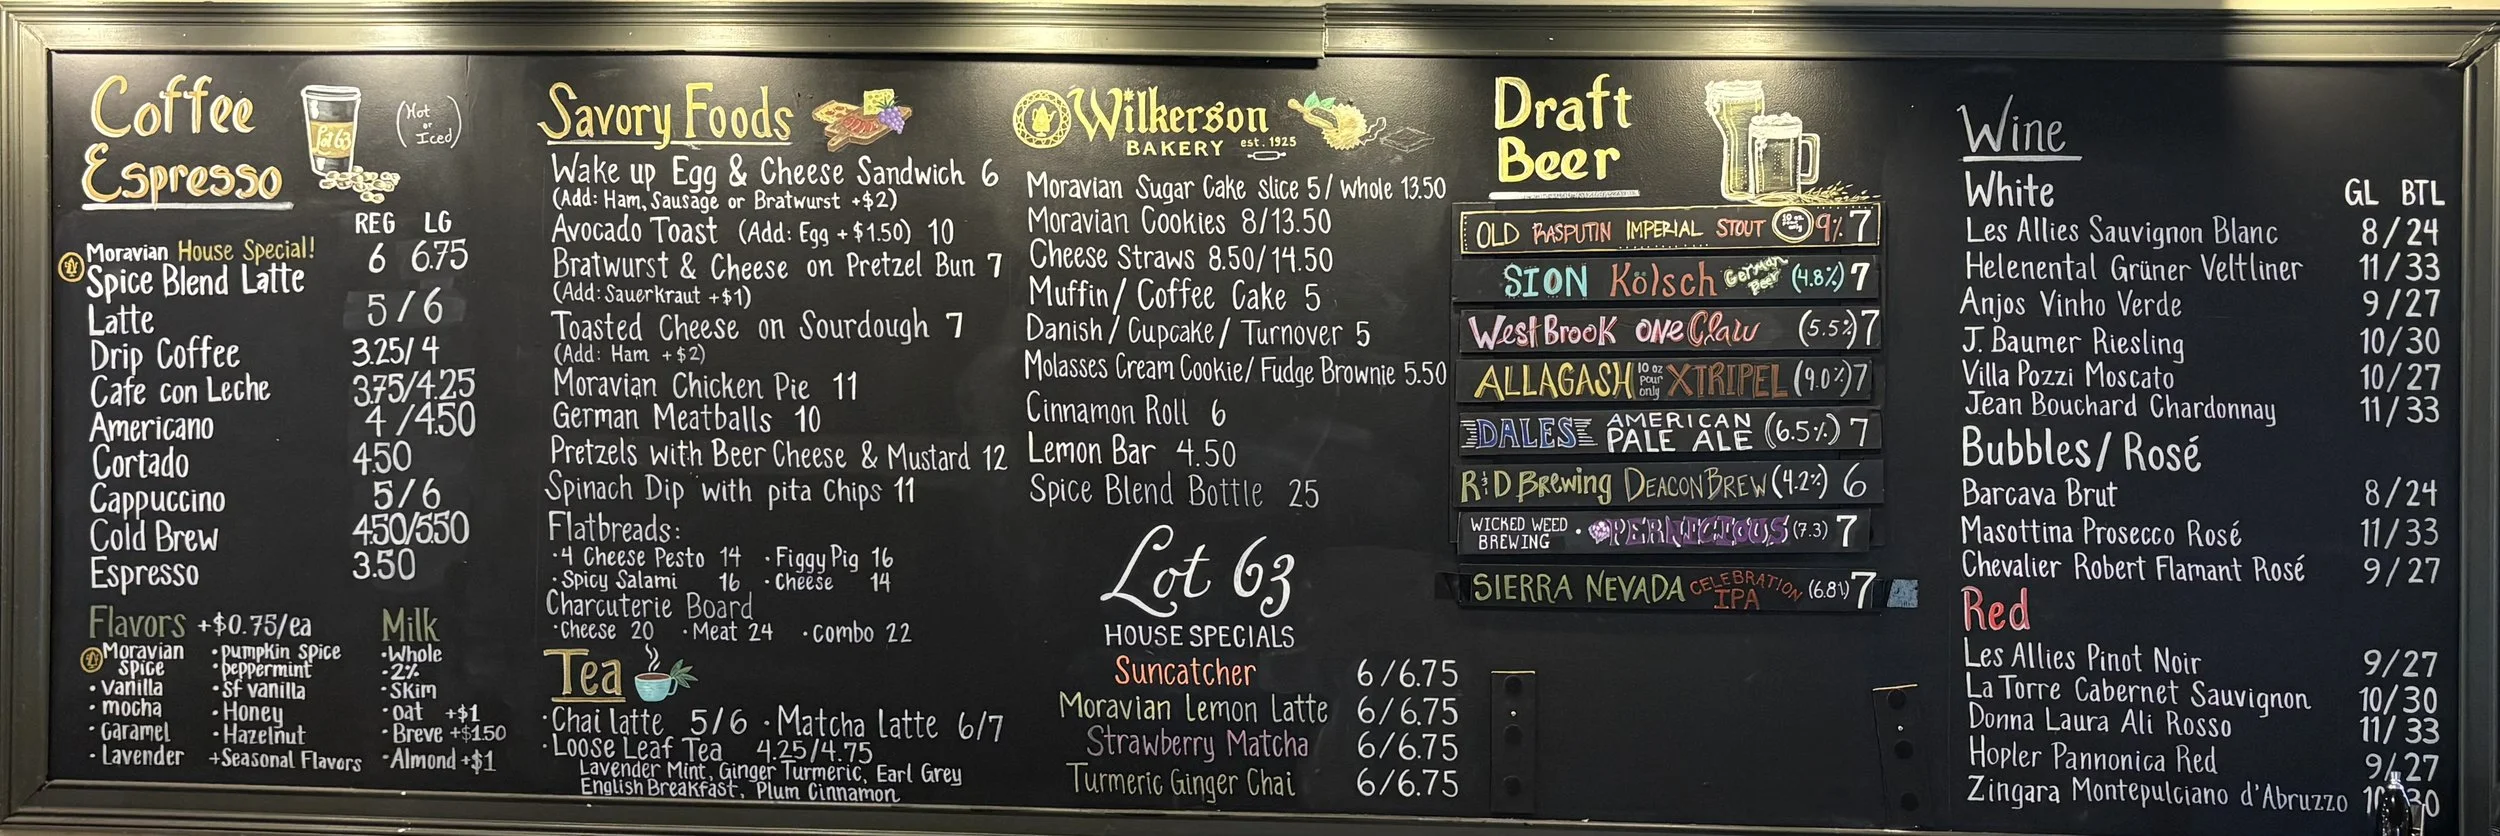 Coffee
Espresso
(Hot or Iced)
Lot 63
REG LG
Moravian House Special!
Spice Blend Latte 6 6.75
Latte 5/6
Drip Coffee 3.25/4
Cafe con Leche 3.75/4.25
Americano 4/4.50
Cortado 4.50
Cappuccino 5/6
Cold Brew 4.50/5.50
Espresso 3.50
Flavors +$0.75/ea
• Moravian spice
• vanilla
• mocha
• caramel
• Lavender
• pumpkin spice
• peppermint
• sf vanilla
• Honey
• Hazelnut
+Seasonal Flavors
Milk
• Whole
• 2%
• Skim
• oat +$1
• Breve +$1.50
• Almond +$1
Savory Foods
Wake up Egg & Cheese Sandwich 6
(Add: Ham, Sausage or Bratwurst +$2)
Avocado Toast (Add: Egg +$1.50) 10
Bratwurst & Cheese on Pretzel Bun 7
(Add: Sauerkraut +$1)
Toasted Cheese on Sourdough 7
(Add: Ham +$2)
Moravian Chicken Pie 11
German Meatballs 10
Pretzels with Beer Cheese & Mustard 12
Spinach Dip with pita Chips 11
Flatbreads:
• 4 Cheese Pesto 14 • Figgy Pig 16
• Spicy Salami 16 • Cheese 14
Charcuterie Board
• Cheese 20 • Meat 24 • Combo 22
Tea
• Chai latte 5/6 • Matcha Latte 6/7
• Loose Leaf Tea 4.25/4.75
Lavender Mint, Ginger Turmeric, Earl Grey
English Breakfast, Plum Cinnamon
Wilkerson
BAKERY est. 1925
Moravian Sugar Cake slice 5/ whole 13.50
Moravian Cookies 8/13.50
Cheese Straws 8.50/14.50
Muffin/ Coffee Cake 5
Danish/ Cupcake/ Turnover 5
Molasses Cream Cookie/ Fudge Brownie 5.50
Cinnamon Roll 6
Lemon Bar 4.50
Spice Blend Bottle 25
Lot 63
HOUSE SPECIALS
Suncatcher 6/6.75
Moravian Lemon Latte 6/6.75
Strawberry Matcha 6/6.75
Turmeric Ginger Chai 6/6.75
Draft
Beer
OLD RASPUTIN IMPERIAL STOUT 10 oz pour only 9% 7
SION Kölsch German Beer (4.8%) 7
WestBrook ONE Claw (5.5%) 7
ALLAGASH 10 oz pour only XTRIPEL (9.0%) 7
DALES AMERICAN PALE ALE (6.5%) 7
R&D Brewing DEACON BREW (4.2%) 6
WICKED WEED BREWING • PERNICIOUS (7.3) 7
SIERRA NEVADA CELEBRATION IPA (6.8%) 7
Wine
White GL BTL
Les Allies Sauvignon Blanc 8/24
Helenental Grüner Veltliner 11/33
Anjos Vinho Verde 9/27
J. Baumer Riesling 10/30
Villa Pozzi Moscato 10/27
Jean Bouchard Chardonnay 11/33
Bubbles/ Rosé
Barcava Brut 8/24
Masottina Prosecco Rosé 11/33
Chevalier Robert Flamant Rosé 9/27
Red
Les Allies Pinot Noir 9/27
La Torre Cabernet Sauvignon 10/30
Donna Laura Ali Rosso 11/33
Hopler Pannonica Red 9/27
Zingara Montepulciano d'Abruzzo